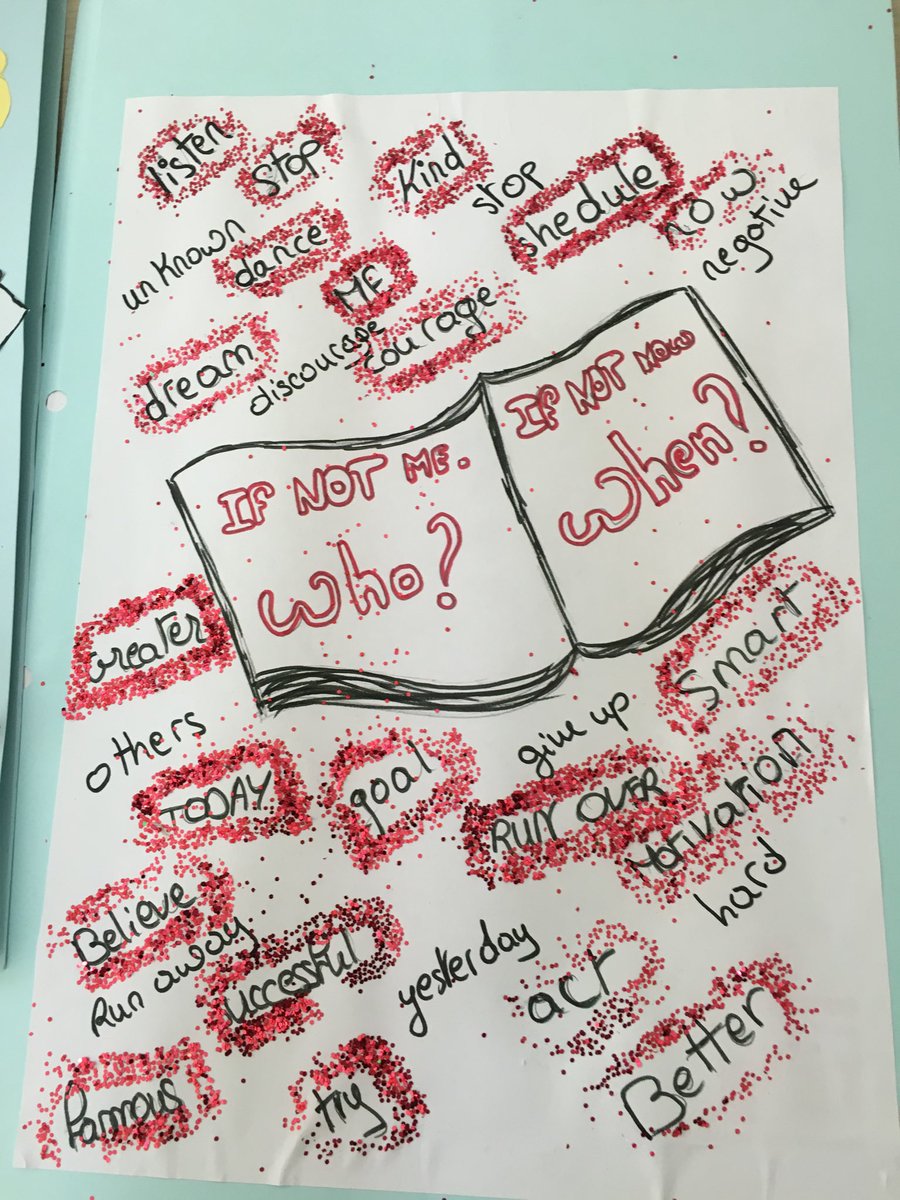 listen
stop
Kind
stop
shedule
now
negative
unknown
dance
ME
discourage
courage
dream
IF NOT ME.
who?
IF NOT NOW
when?
Greater
others
TODAY
goal
give up
Smart
RUN OVER
Motivation
hard
Believe
Run away
uccessful
yesterday
act
Better
Fammous
try